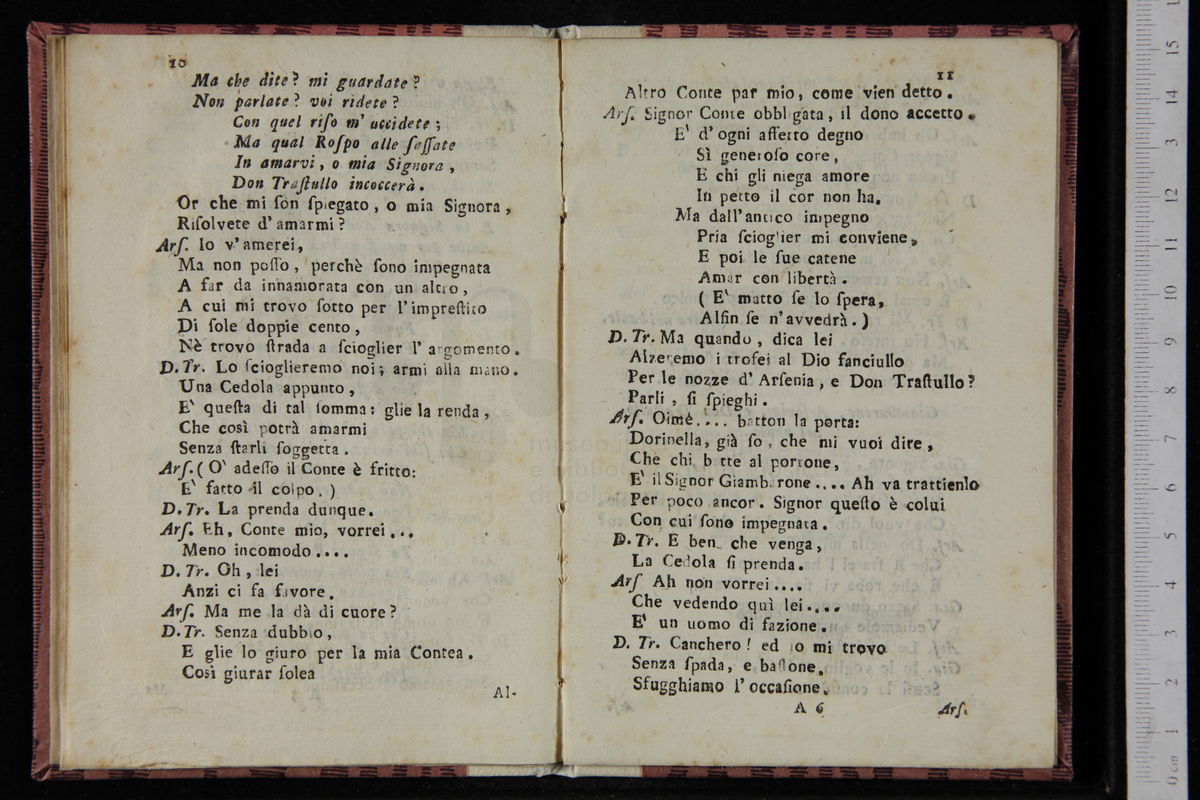 10
Ma che dite? mi guardate?
Non parlate? voi ridete?
Con quel riſo m' uccidete;
Ma qual Roſpo alle ſaſſate
In amarvi, o mia Signora,
Don Traſtullo incoccerà.
Or che mi ſon ſpiegato, o mia Signora,
Riſolvete d' amarmi?
Arſ. Io v' amerei,
Ma non poſſo, perchè ſono impegnata
A far da innamorata con un altro,
A cui mi trovo ſotto per l' impreſtito
Di ſole doppie cento,
Nè trovo ſtrada a ſcioglier l' argomento.
D. Tr. Lo ſcioglieremo noi; armi alla mano.
Una Cedola appunto,
E' queſta di tal ſomma: glie la renda,
Che così potrà amarmi
Senza ſtarli ſoggetta.
Arſ. (O' adeſſo il Conte è fritto:
E' fatto il colpo.)
D. Tr. La prenda dunque.
Arſ. Eh, Conte mio, vorrei...
Meno incomodo....
D. Tr. Oh, lei
Anzi ci fa favore.
Arſ. Ma me la dà di cuore?
D. Tr. Senza dubbio,
E glie lo giuro per la mia Contea.
Così giurar ſolea
Al-
11
Altro Conte par mio, come vien detto.
Arſ. Signor Conte obbligata, il dono accetto.
E' d' ogni affetto degno
Sì generoſo core,
E chi gli niega amore
In petto il cor non ha.
Ma dall' antico impegno
Pria ſcioglier mi conviene,
E poi le ſue catene
Amar con libertà.
(E' matto ſe lo ſpera,
Alfin ſe n' avvedrà.)
D. Tr. Ma quando, dica lei
Alzeremo i trofei al Dio fanciullo
Per le nozze d' Arſenia, e Don Traſtullo?
Parli, ſi ſpieghi.
Arſ. Oimè.... batton la porta:
Dorinella, già ſo, che mi vuoi dire,
Che chi batte al portone,
E' il Signor Giambarone.... Ah va trattienlo
Per poco ancor. Signor queſto è colui
Con cui ſono impegnata.
D. Tr. E ben, che venga,
La Cedola ſi prenda.
Arſ Ah non vorrei....
Che vedendo quì lei....
E' un uomo di fazione.
D. Tr. Canchero! ed io mi trovo
Senza ſpada, e baſtone.
Sfugghiamo l' occaſione.
A 6
Arſ.